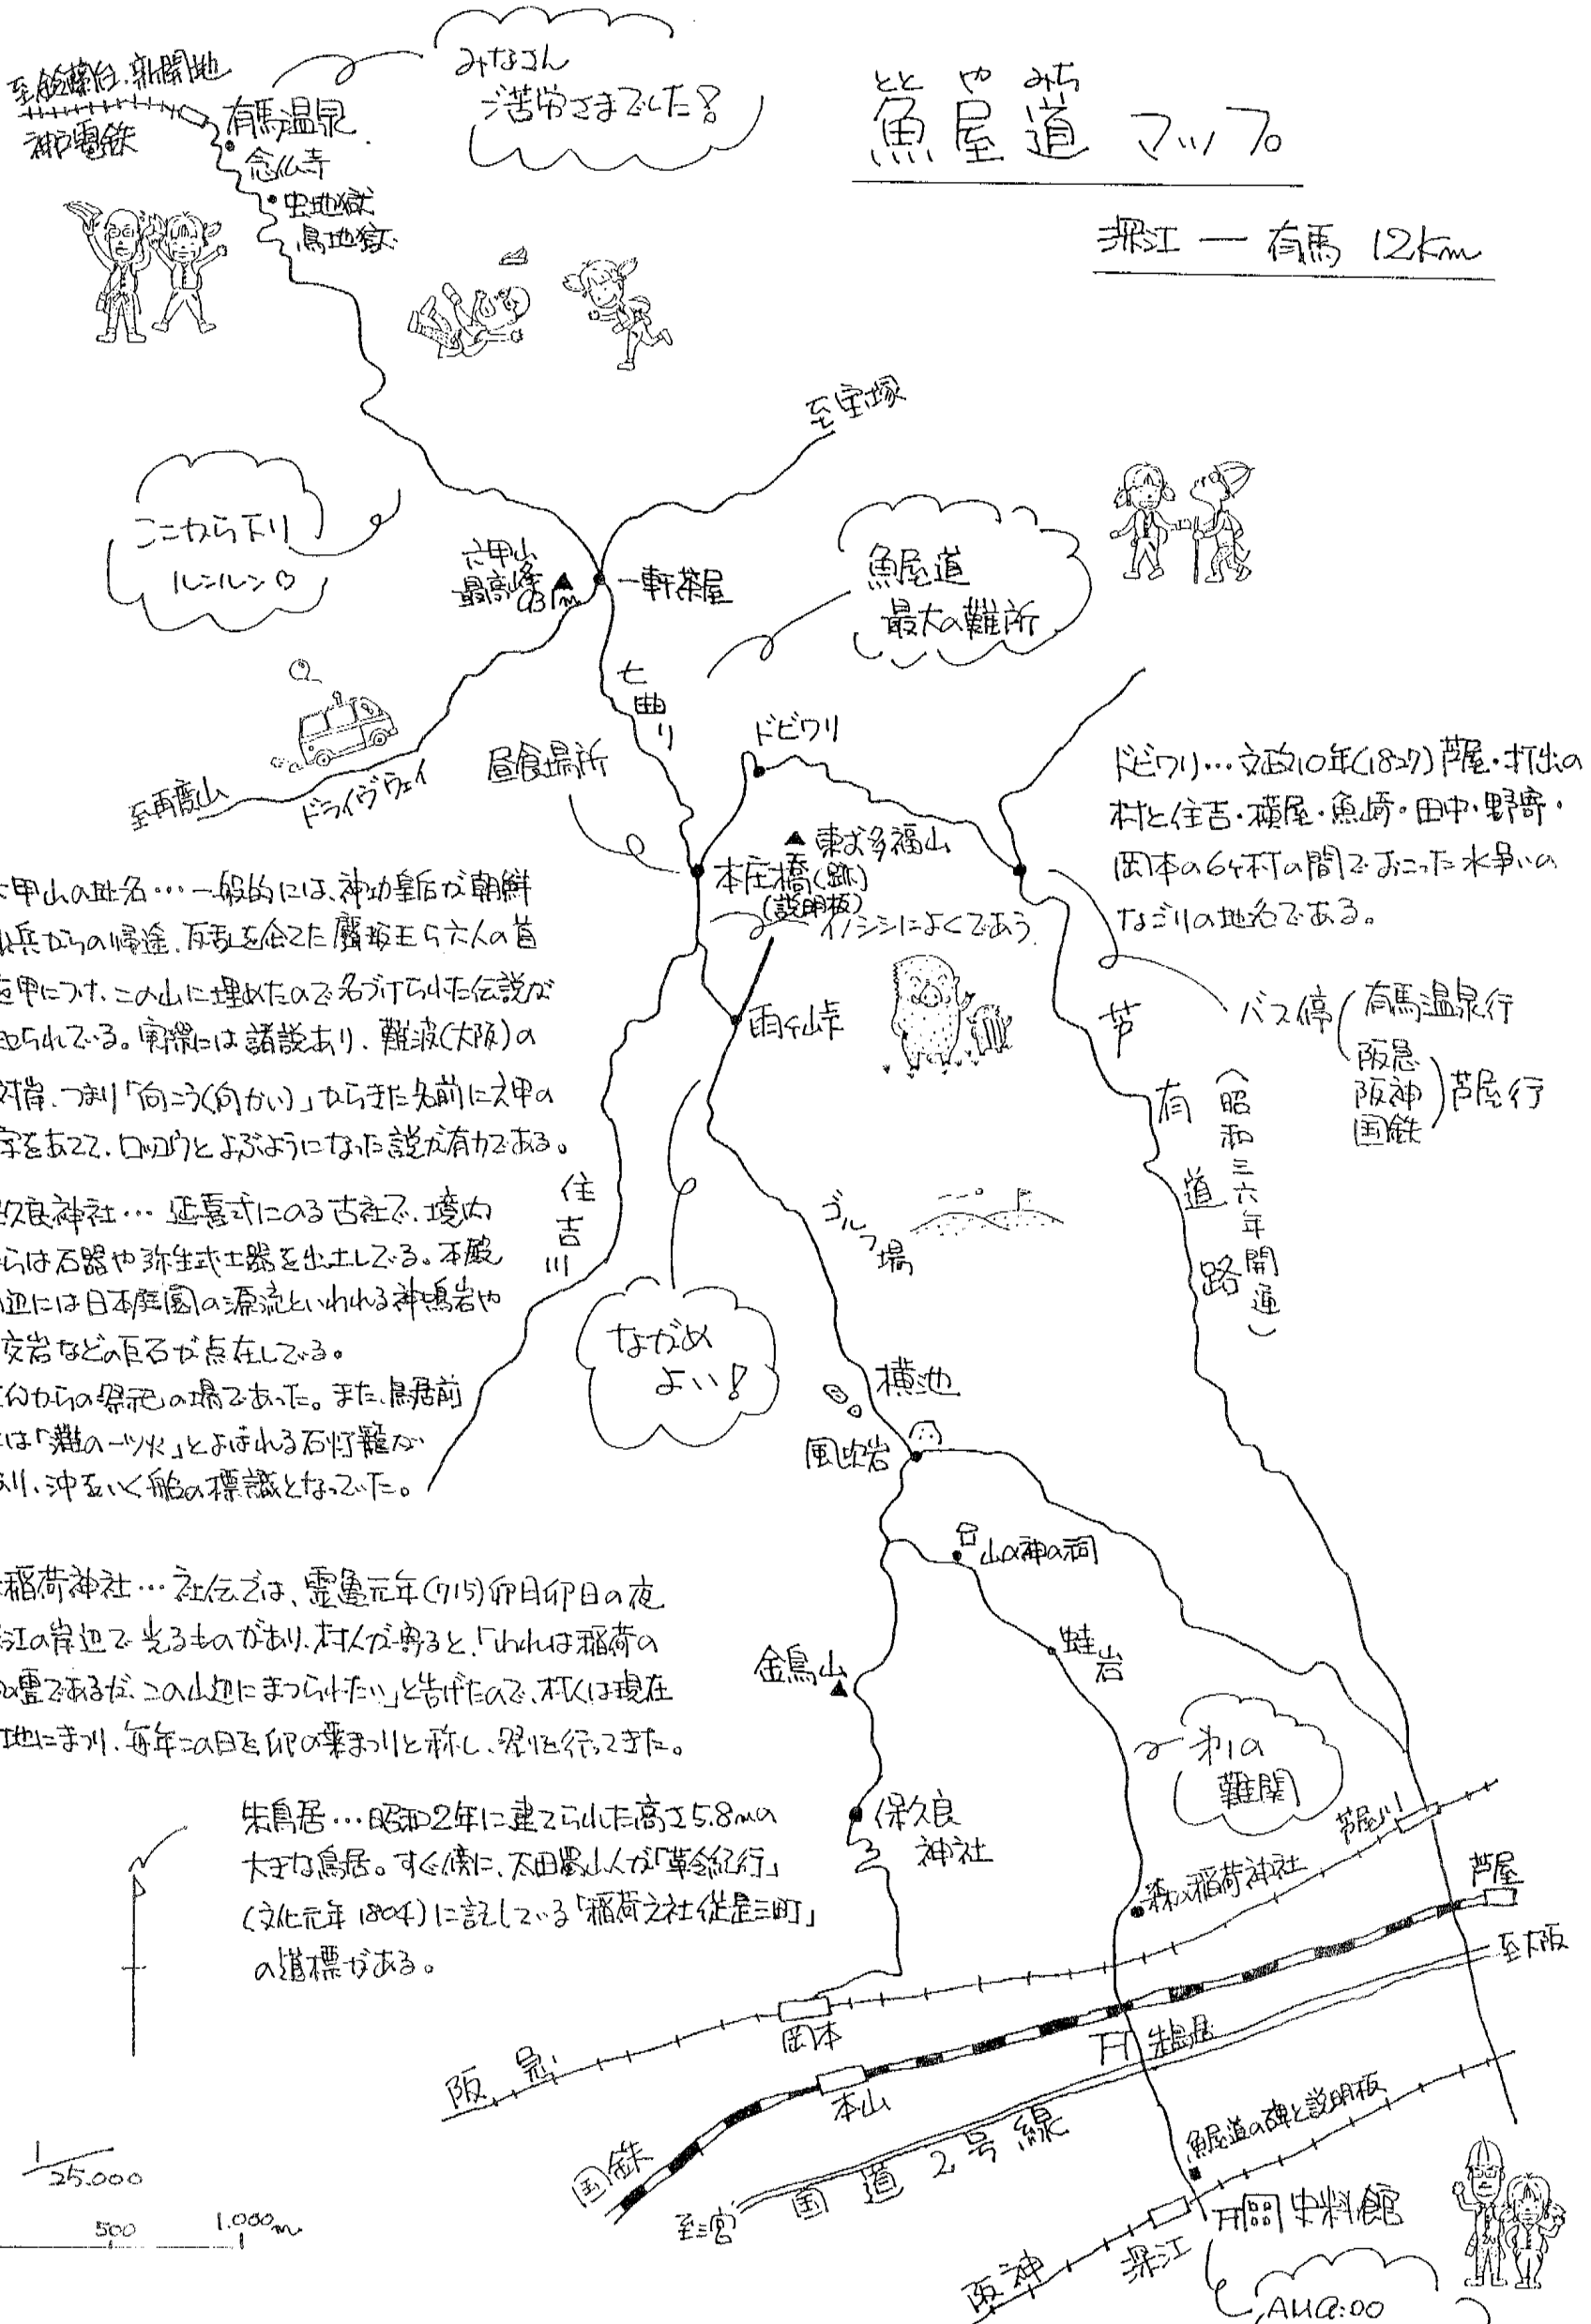 ととやみち
魚屋道 マップ
深江 ― 有馬 12Km
みなさん
ご苦労さまでした!
至鈴蘭台.新開地
神戸電鉄
有馬温泉
念仏寺
虫地獄
鳥地獄
至宝塚
ここから下り
ルンルン♡
六甲山
最高峰
931m
一軒茶屋
魚屋道
最大の難所
七曲り
ドビワリ
昼食場所
至再度山
ドライヴウェイ
東お多福山
本庄橋(跡)
(説明板)
イノシシによくであう
ドビワリ…文政10年(1827)芦屋・打出の
村と住吉・横屋・魚崎・田中・野寄・
岡本の6ヶ村の間でおこった水争いの
なごりの地名である。
バス停
有馬温泉行
阪急
阪神
国鉄
芦屋行
雨ヶ峠
芦有道路
(昭和三六年開通)
甲山の地名…一般的には、神功皇后が朝鮮
兵からの帰途、反乱を企てた麛坂王ら六人の首
を甲につけ、この山に埋めたので名づけられた伝説が
知られている。実際には諸説あり、難波(大阪)の
対岸、つまり「向こう(向かい)」からきた名前に六甲の
字をあてて、ロッコウとよぶようになった説が有力である。
久良神社… 延喜式にのる古社で、境内
らは石器や弥生式土器を出土している。本殿
辺には日本庭園の源流といわれる神鳴岩や
交岩などの巨石が点在している。
からの祭祀の場であった。また、鳥居前
は「灘の一ツ火」とよばれる石灯籠が
あり、沖をいく船の標識となっていた。
住吉川
ゴルフ場
ながめ
よい!
横池
風吹岩
山の神の祠
稲荷神社…社伝では、霊亀元年(715)卯月卯日の夜
江の岸辺で光るものがあり、村人が寄ると、「われは稲荷の
の霊であるが、この山辺にまつられたい」と告げたので、村人は現在
地にまつり、毎年この日を卯の葉まつりと称し、祭りを行ってきた。
金鳥山
蛙岩
難関
保久良
神社
朱鳥居…昭和2年に建てられた高さ5.8mの
大きな鳥居。すぐ傍に、太田蜀山人が「革令紀行」
(文化元年1804)に記している「稲荷之社従是三町」
の道標がある。
芦屋川
森の稲荷神社
芦屋
至大阪
岡本
阪急
朱鳥居
本山
国鉄
国道2号線
至三宮
魚屋道の碑と説明板
史料館
深江
阪神
1/25.000
500
1.000m